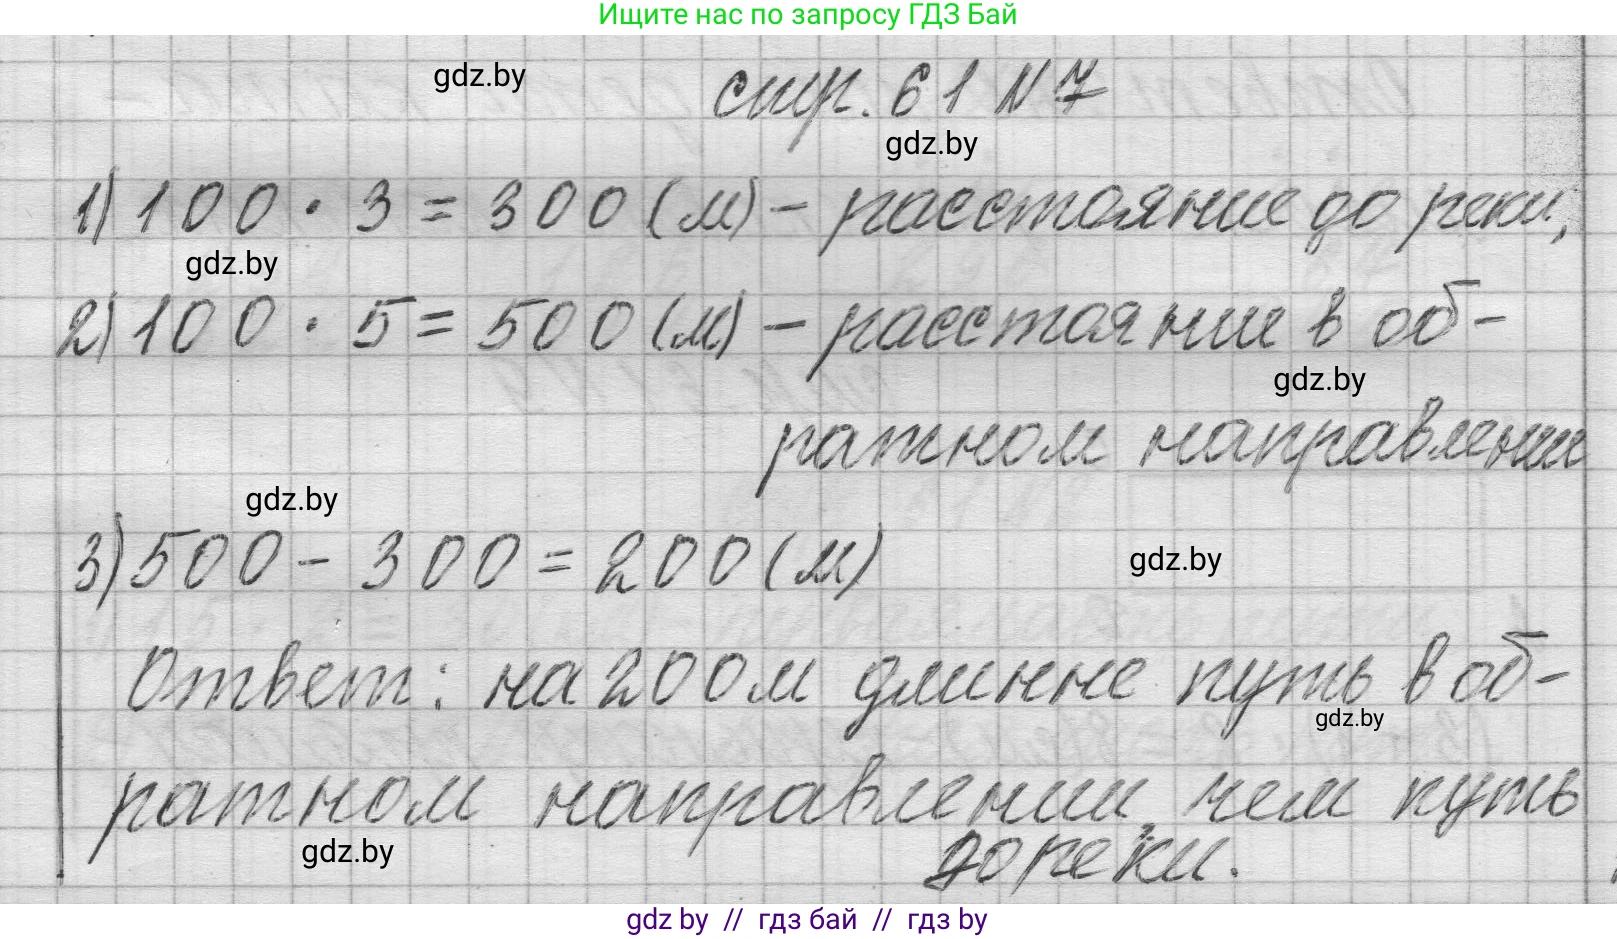 Ищите нас по запросу ГДЗ Бай
gdz.by
стр. 61 N 7
gdz.by
1) 100 · 3 = 300 (м) - расстояние до реки,
gdz.by
2) 100 · 5 = 500 (м) - расстояние в об-
gdz.by
ратном направлении
gdz.by
3) 500 - 300 = 200 (м)
gdz.by
Ответ: на 200 м длинне путь в об-
gdz.by
ратном направлении, чем путь
до реки.
gdz.by
gdz by // гдз бай // гдз by